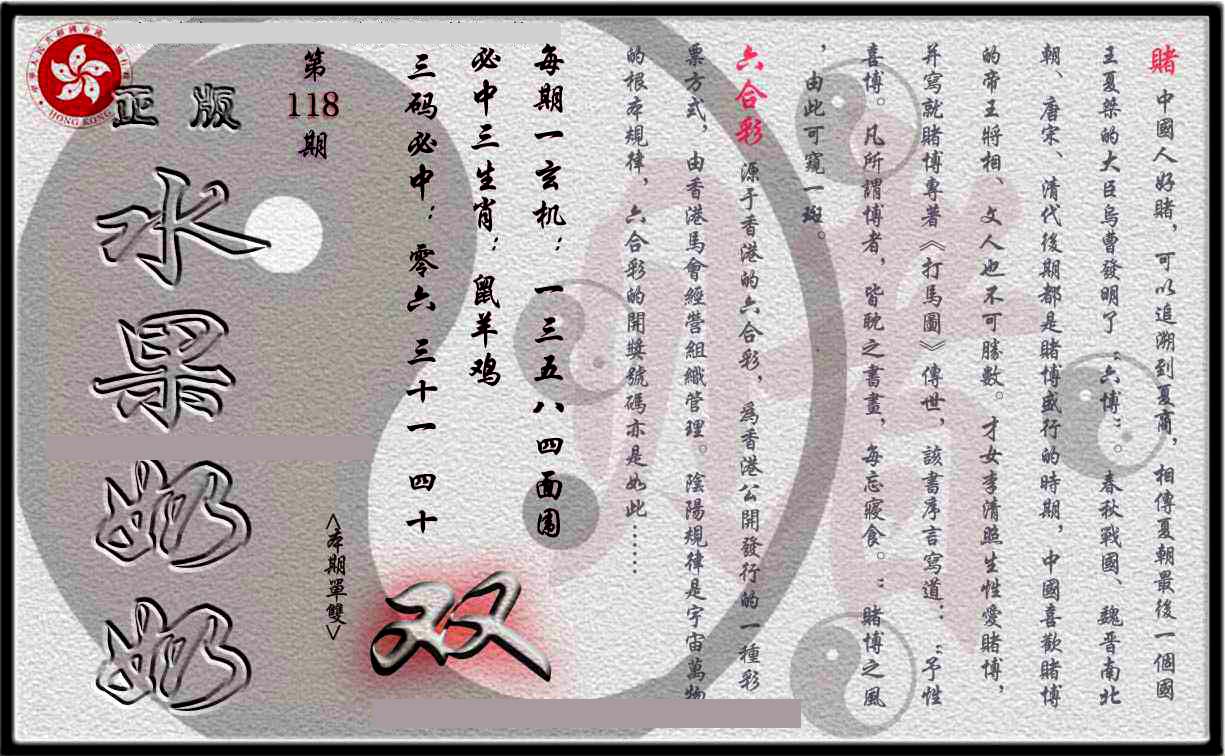 賭 中國人好賭，可以追溯到夏商，相傳夏朝最後一個國
王夏桀的大臣烏曹發明了“六博”。春秋戰國、魏晉南北
朝、唐宋、清代後期都是賭博盛行的時期，中國喜歡賭博
的帝王將相、文人也不可勝數。才女李清照生性愛賭博，
并寫就賭博專著《打馬圖》傳世，該書序言寫道：“予性
喜博。凡所謂博者，皆耽之書晝，每忘寢食。”賭博之風
，由此可窺一斑。
六合彩 源于香港的六合彩，為香港公開發行的一種彩
票方式，由香港馬會經營組織管理。陰陽規律是宇宙萬物
的根本規律，六合彩的開獎號碼亦是如此……
每期一玄机：一三五八四面围
必中三生肖：鼠羊鸡
三码必中：零六 三十一 四十
第118期
正版
水果奶奶
<本期單雙>
双
HONG KONG